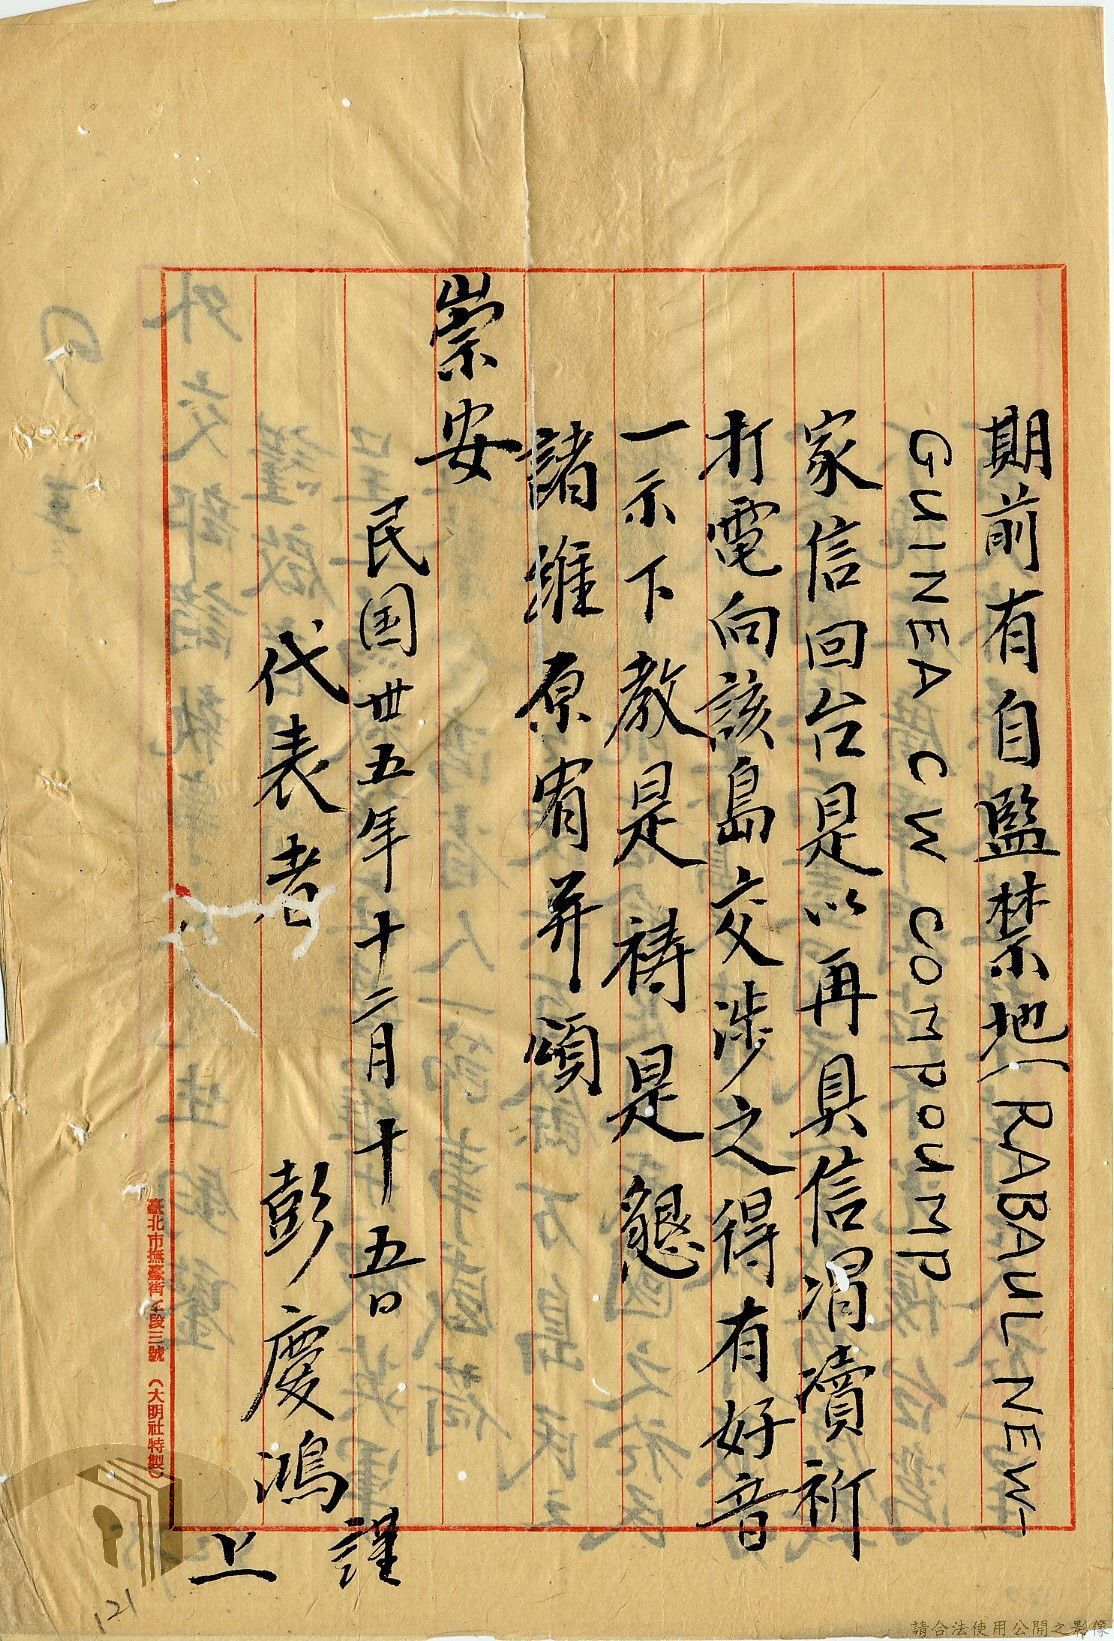 期前有自監禁地(RABAUL NEW-
GUINEA CW COMPOUMP
家信回台是以再具信涓瀆祈
打電向該島交涉之得有好音
一示下教是禱是懇
諸維原宥并頌
崇安
民国卅五年十二月十五日
代表者 彭慶鴻 謹
上
臺北市撫臺街二段三號(大明社特製)
121
請合法使用公開之影像